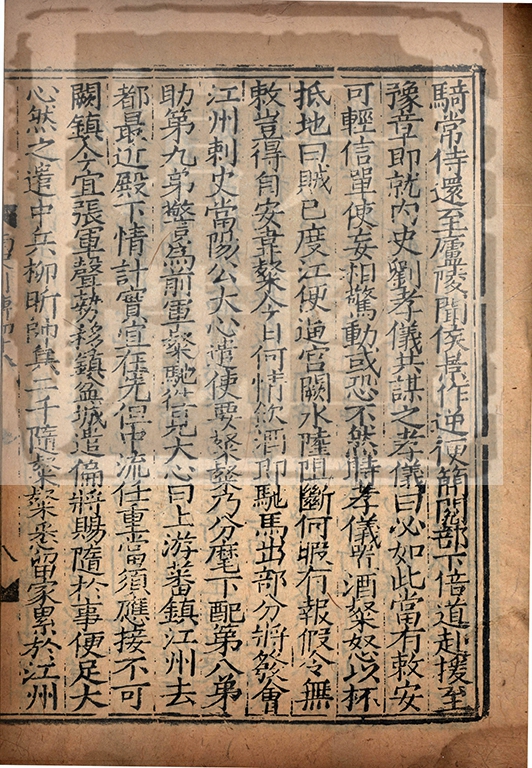 騎常侍還至廬陵聞侯景作逆便簡閱部下倍道赴援至
豫章即就內史劉孝儀共謀之孝儀曰必如此當有敕安
可輕信單使妄相驚動或恐不然時孝儀置酒粲怒以杯
抵地曰賊已度江便逼宮闕水陸阻斷何暇有報假令無
敕豈得自安韋粲今日何情飲酒即馳馬出部分將發會
江州刺史當陽公大心遣使要粲粲乃分麾下配第八弟
助第九弟警為前軍粲馳徃見大心曰上游蕃鎮江州去
都最近殿下情計實宜在先但中流任重當須應接不可
闕鎮今宜張軍聲勢移鎮湓城遣偏將賜隨於事便足大
心然之遣中兵柳昕帥兵二千隨粲粲悉留家累於江州